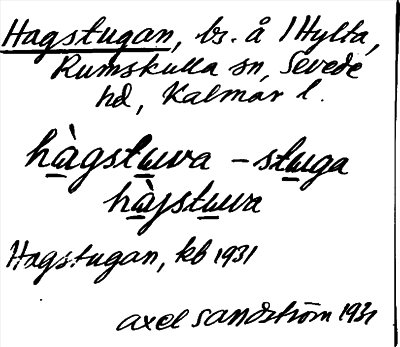 Hagstugan, bs. å 1 Hylta,
Rumskulla sn, Sevede
hd, Kalmar l.
hàgstuva - stuga
hàjstuva
Hagstugan, kb 1931
Axel Sandström 1931